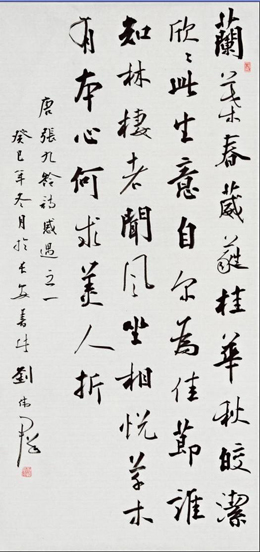 蘭葉春葳蕤桂華秋皎潔
欣〻此生意自尔為佳節誰
知林棲者聞風坐相悅草木
有本心何求美人折
唐張九齡詩感遇之一
癸巳年冬月於長安 劉